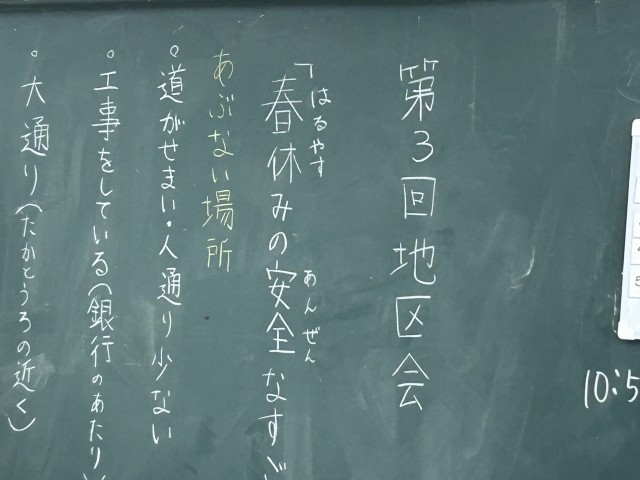 第3回地区会
「春休みの安全なす
はるやす
あんぜん
あぶない場所
。道がせまい・人通り少ない
。工事をしている(銀行のあたり)
。大通り(たかとうろの近く)
10:5